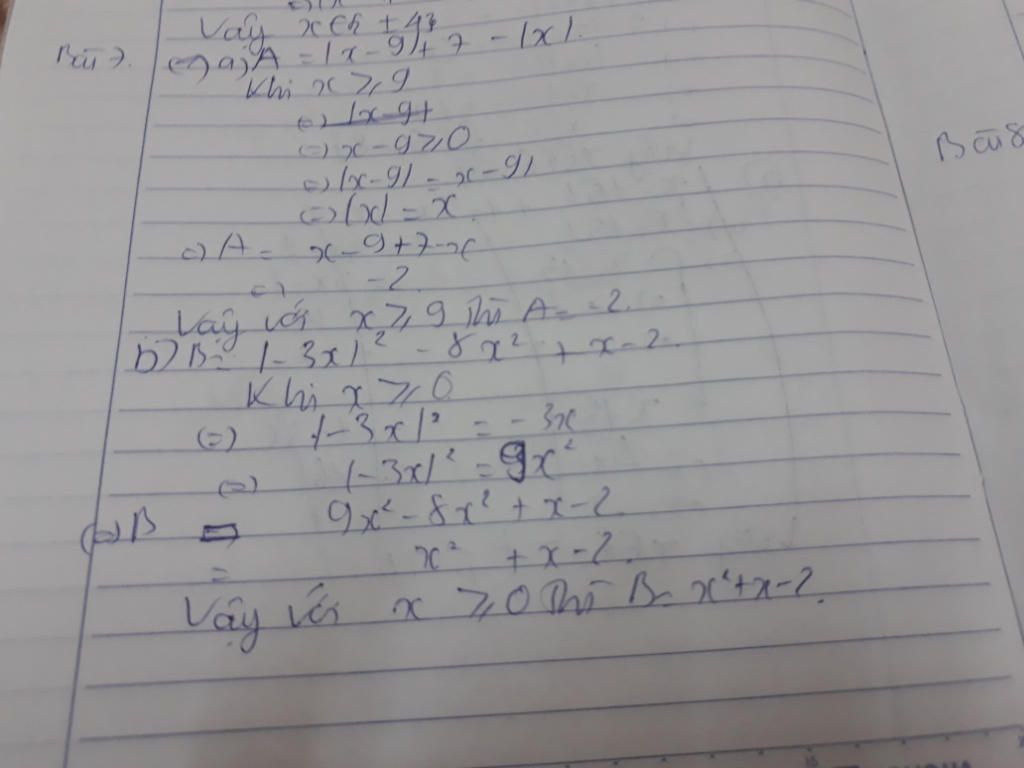 Vậy x ∈ { ± 4}
Bài 7. (=) a) A = |x - 9| + 7 - |x|.
Khi x ≥ 9
(=) |x - 9|
(=) x - 9 ≥ 0
Bài 8
=) |x - 9| = x - 9
(=) |x| = x
=) A = x - 9 + 7 - x
=) -2.
Vậy với x ≥ 9 thì A = -2.
b) B = |-3x|² - 8x² + x - 2.
Khi x ≥ 0
(=) |-3x|² = -3x
(=) |-3x|² = 9x²
(=) B = 9x² - 8x² + x - 2
= x² + x - 2.
Vậy với x ≥ 0 thì B = x² + x - 2.
15